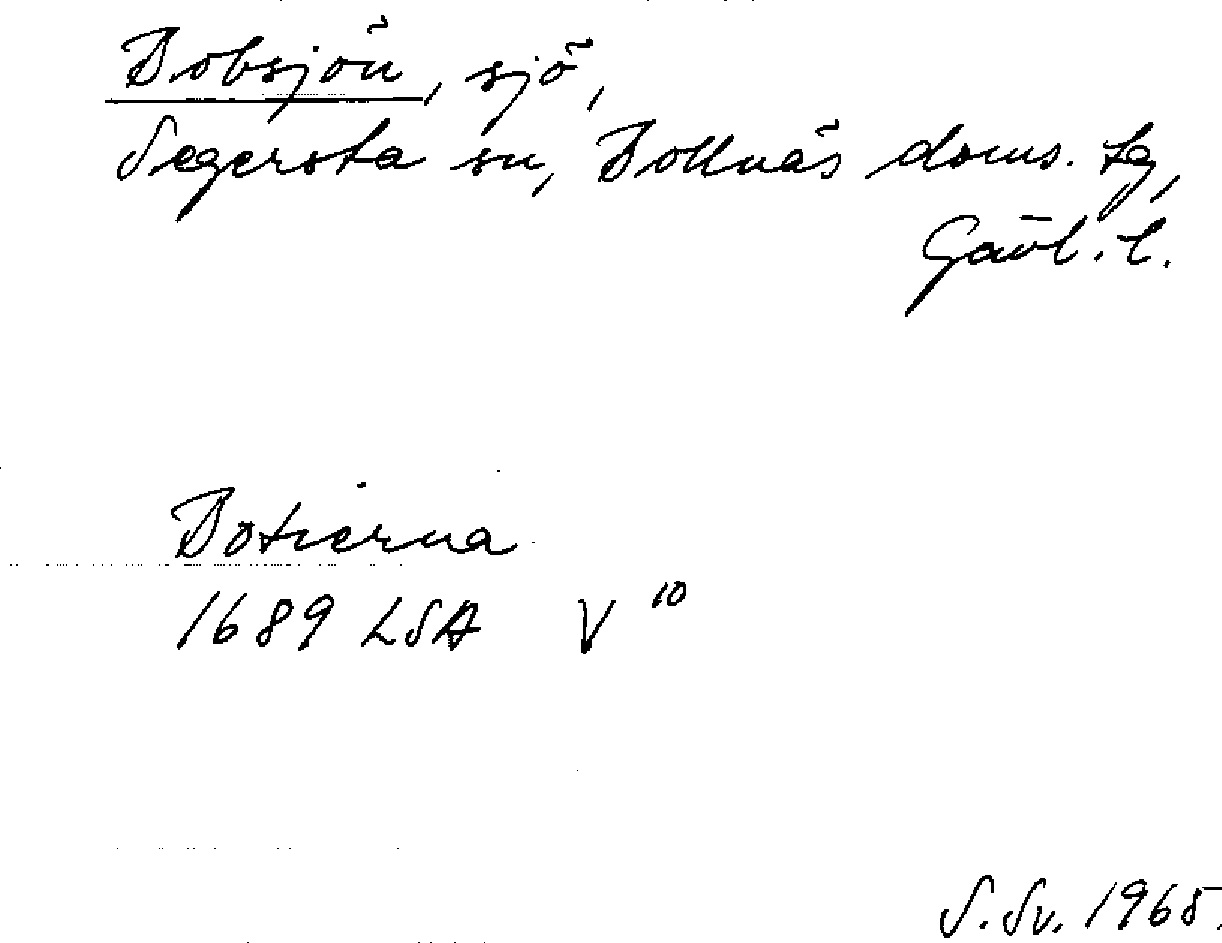 Bobsjön, sjö,
Segersta sn, Bollnäs doms. tg,
Gävl. l.
Botierna
1689 LSA V 10
S. Sv. 1965.